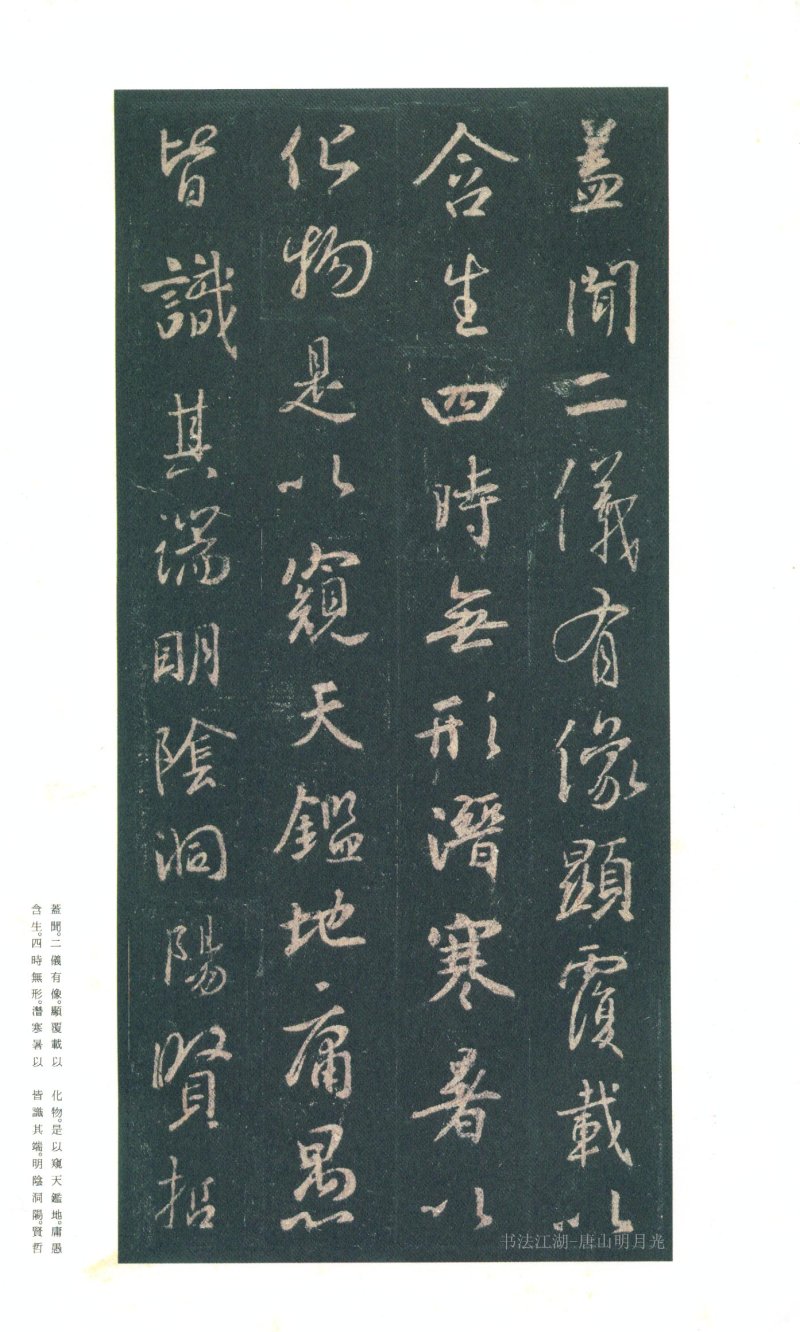 蓋聞二儀有像顯覆載以
含生四時無形潛寒暑以
化物是以窺天鑑地庸愚
皆識其端明陰洞陽賢哲
蓋聞。二儀有像。顯覆載以
含生。四時無形。潛寒暑以
化物。是以窺天鑑地。庸愚
皆識其端。明陰洞陽。賢哲
书法江湖-唐山明月光